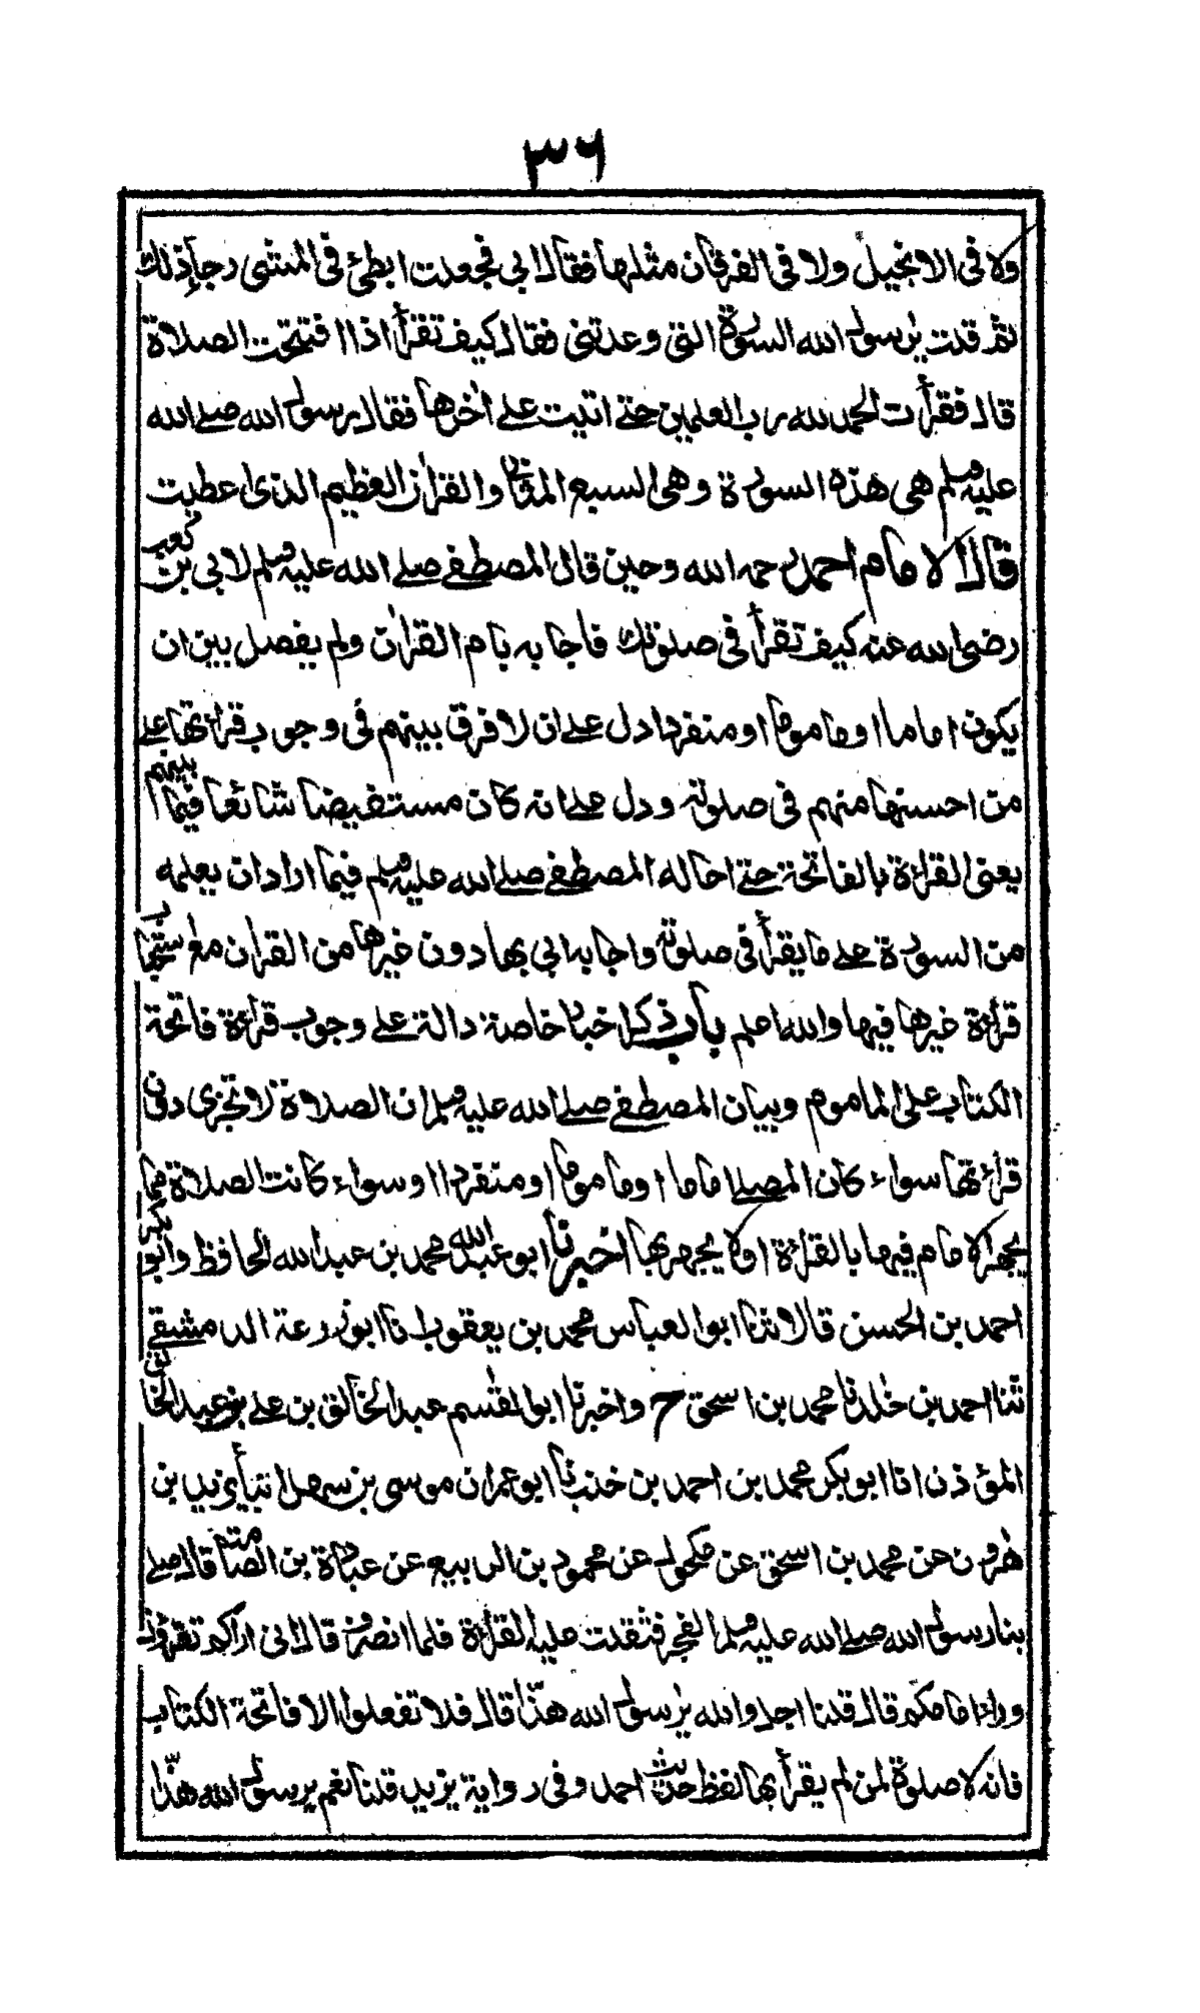 ٣٦
ولا في الانجيل ولا في الفرقان مثلها فقال ابي فجعلت ابطئ في المشي رجاء ذلك
ثم قلت يرسول الله السورة التي وعدتني فقال كيف تقرأ اذا افتتحت الصلاة
قال فقرأت الحمد لله رب العلمين حتى اتيت على اخرها فقال رسول الله صلى الله
عليه وسلم هي هذه السورة وهي السبع المثاني والقران العظيم الذي اعطيت
قال الامام احمد رحمه الله وحين قال المصطفى صلى الله عليه وسلم لابي بن كعب
رضي الله عنه كيف تقرأ في صلوتك فاجابه بام القران ولم يفصل بين ان
يكون اماما او ماموما او منفردا دل على ان لا فرق بينهم في وجوب قرائتها على
من احسنها منهم في صلوته ودل على انه كان مستفيضا شائعا فيما بينهم
يعني القراءة بالفاتحة حتى احاله المصطفى صلى الله عليه وسلم فيما اراد ان يعلمه
من السورة على ما يقرأ في صلوته واجابه ابي بها دون غيرها من القران مع استحباب
قراءة غيرها فيها والله اعلم باب ذكر اخبار خاصة دالة على وجوب قراءة فاتحة
الكتاب على الماموم وبيان المصطفى صلى الله عليه وسلم ان الصلاة لا تجزى دون
قراءتها سواء كان المصلي اماما او ماموما او منفردا او سواء كانت الصلاة مما
يجهر الامام فيها بالقراءة او لا يجهر بها اخبرنا ابو عبد الله محمد بن عبد الله الحافظ وابو بكر
احمد بن الحسن قالا ثنا ابو العباس محمد بن يعقوب انا ابو زرعة الدمشقي
ثنا احمد بن خلد نا محمد بن اسحق ح واخبرنا ابو القسم عبد الخالق بن علي بن عبد الخالق
المؤذن انا ابو بكر محمد بن احمد بن خنب نا ابو عمران موسى بن سهل انبأ يزيد بن
هرون عن محمد بن اسحق عن مكحول عن محمود بن الربيع عن عبادة بن الصامت قال صلى
بنا رسول الله صلى الله عليه وسلم الفجر فثقلت عليه القراءة فلما انصرف قال اني اراكم تقرؤن
وراء امامكم قال قلنا اجل والله يرسول الله هذا قال فلا تفعلوا الا فاتحة الكتاب
فانه لا صلوة لمن لم يقرأ بها لفظ حديث احمد وفي رواية يزيد قلنا نعم يرسول الله هذا